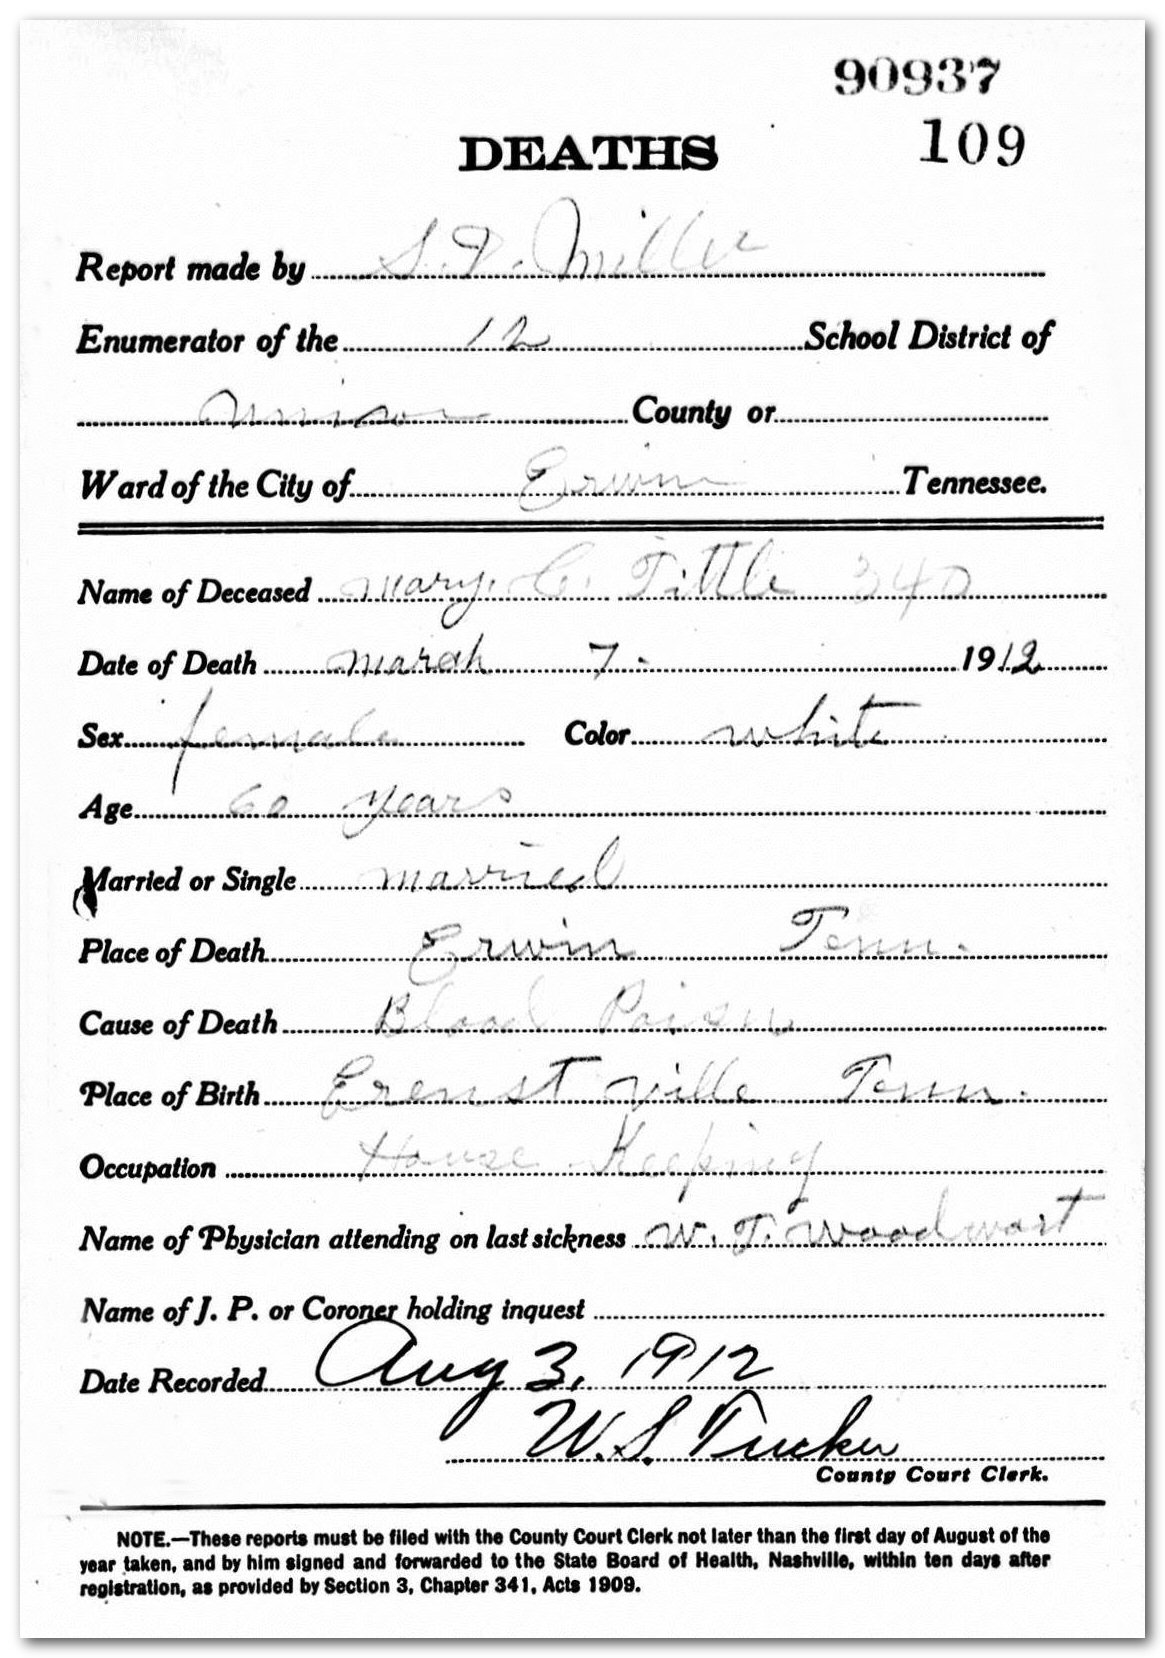 90937
109
DEATHS
Report made by S. D. Miller
Enumerator of the 12 School District of
County or
Ward of the City of Erwin Tennessee.
Name of Deceased Mary. C. Tittle 340
Date of Death March 7. 1912
Sex female Color white
Age 60 years
Married or Single married
Place of Death Erwin Tenn.
Cause of Death Blood Poisn
Place of Birth Erenst ville Tenn.
Occupation House Keeping
Name of Physician attending on last sickness W. T. Woodwart
Name of J. P. or Coroner holding inquest
Date Recorded Aug 3, 1912
W. S. Tucker
County Court Clerk.
NOTE.—These reports must be filed with the County Court Clerk not later than the first day of August of the
year taken, and by him signed and forwarded to the State Board of Health, Nashville, within ten days after
registration, as provided by Section 3, Chapter 341, Acts 1909.